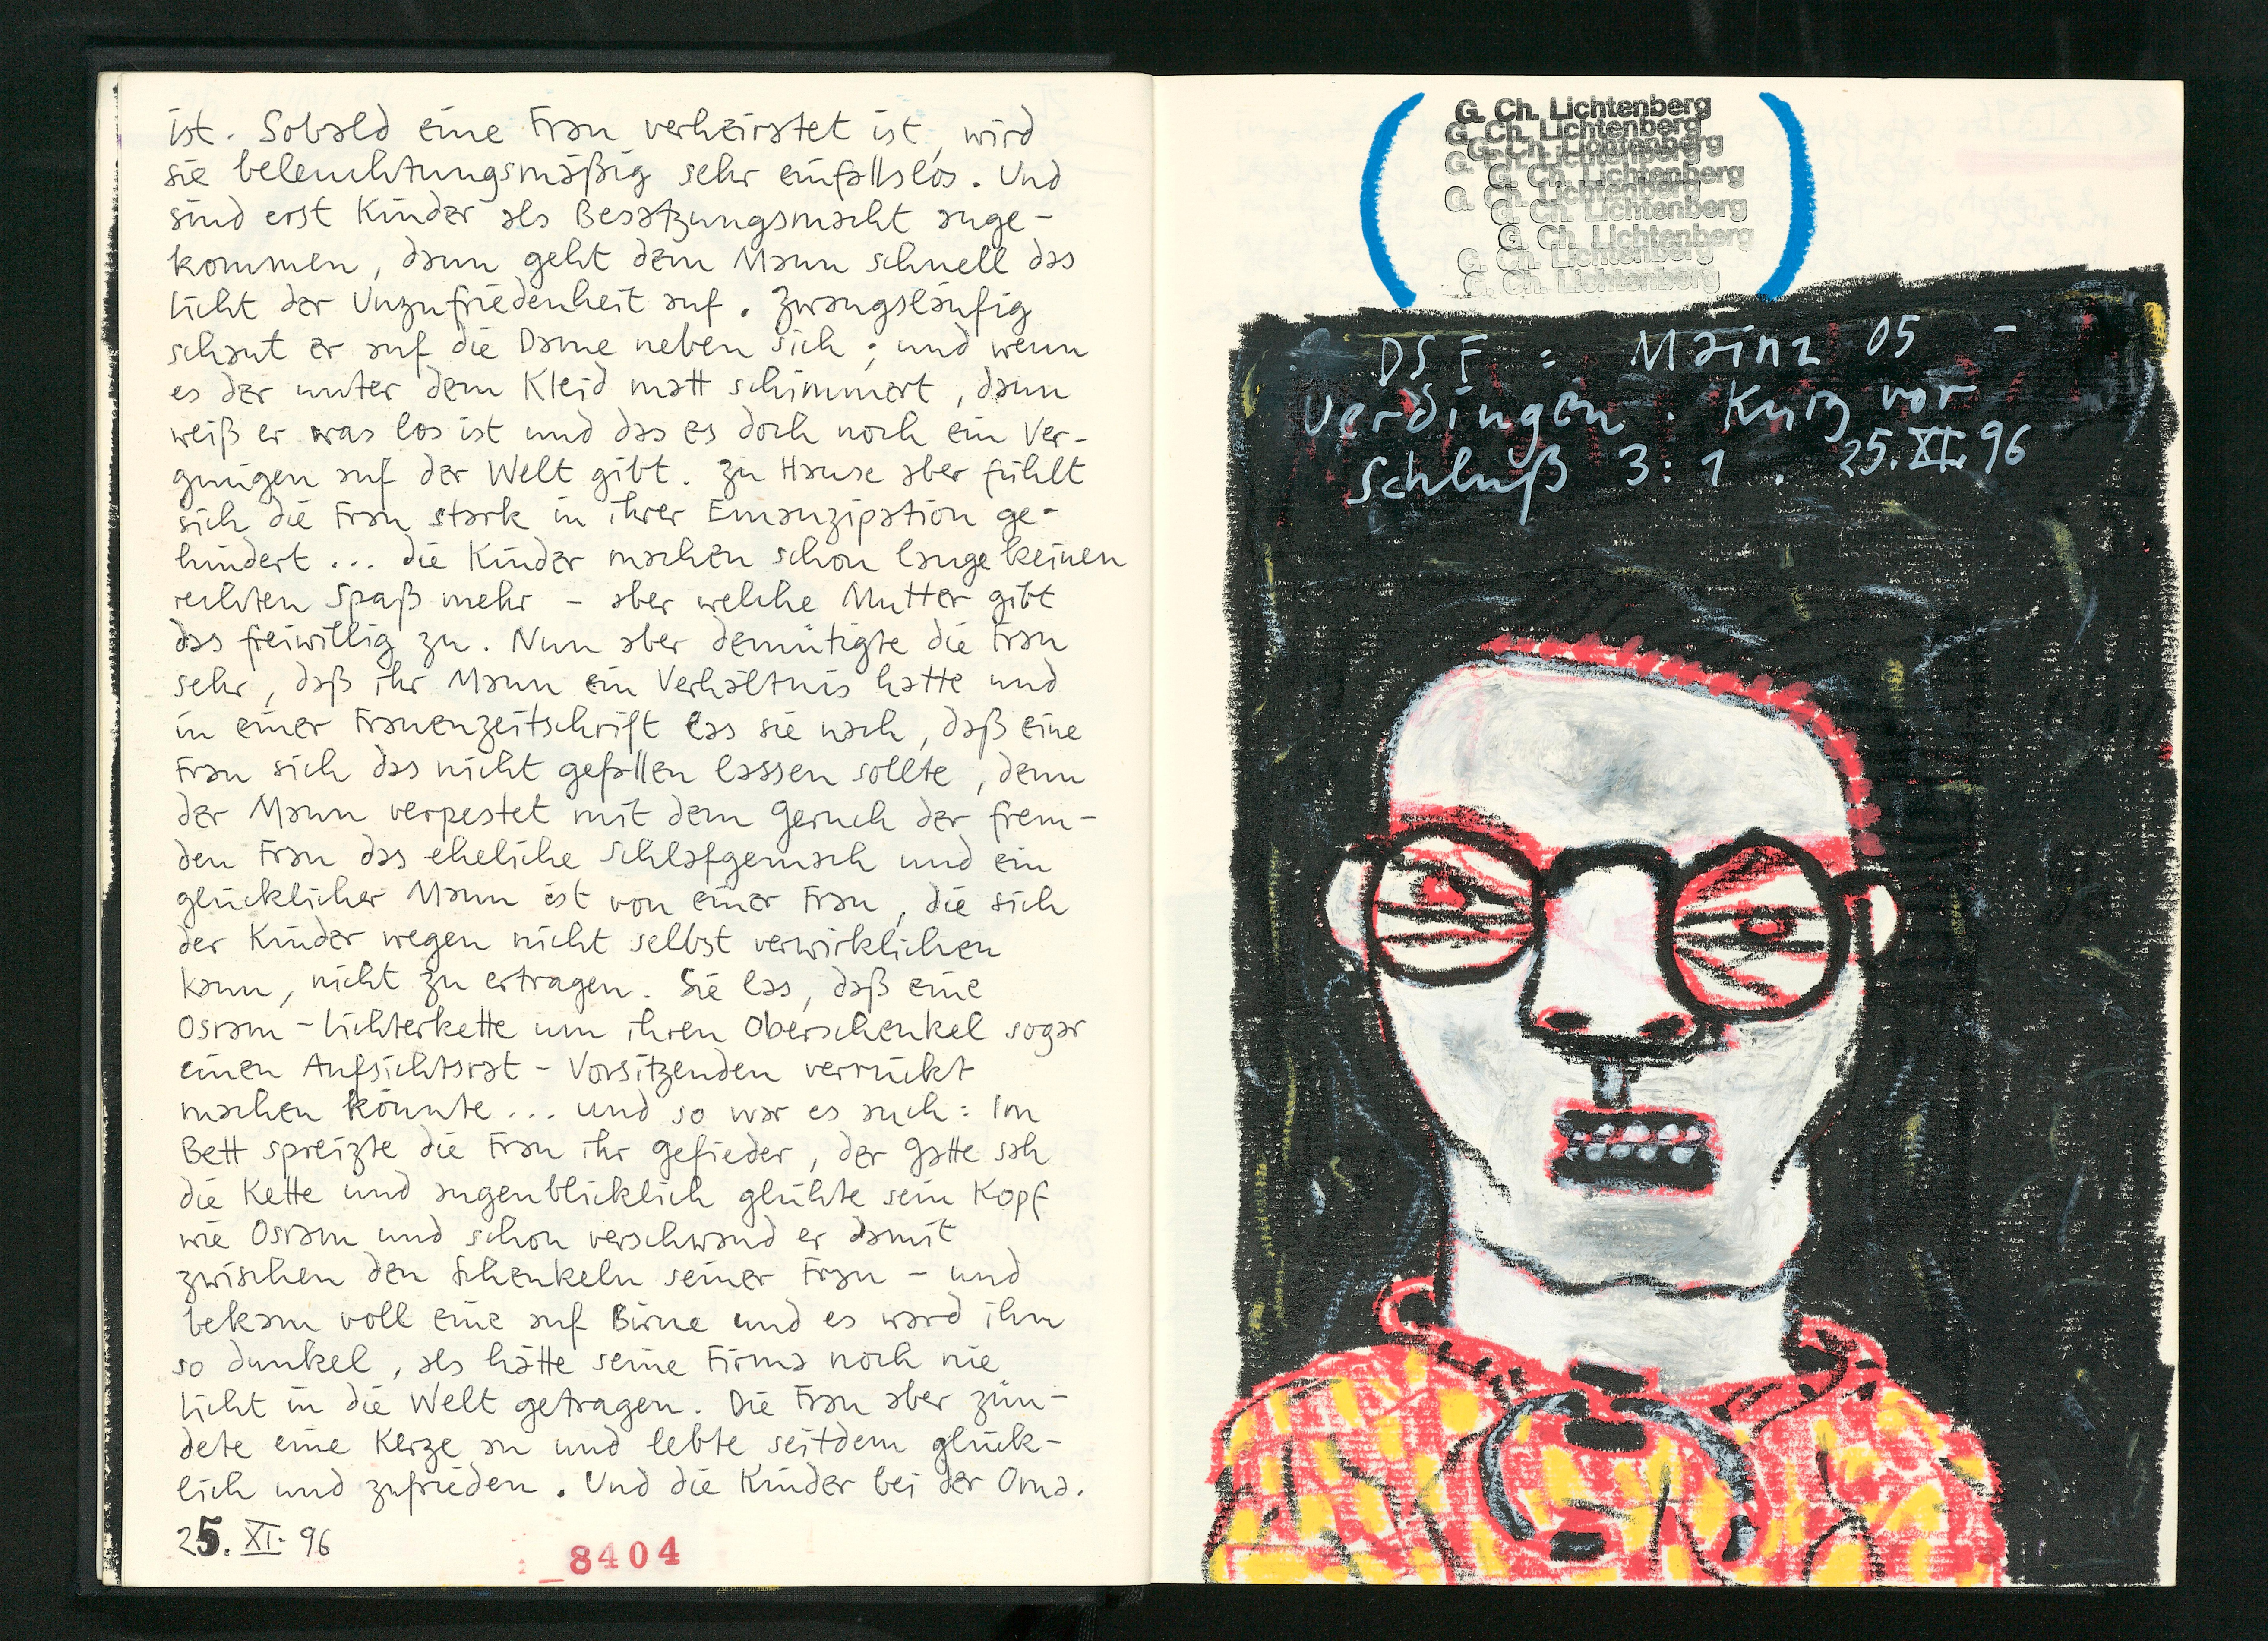 ist. Sobald eine Frau verheiratet ist, wird
sie beleuchtungsmäßig sehr einfallslos. Und
sind erst Kinder als Besatzungsmacht ange-
kommen, dann geht dem Mann schnell das
Licht der Unzufriedenheit auf. Zwangsläufig
schaut er auf die Dame neben sich; und wenn
es der unter dem Kleid matt schimmert, dann
weiß er was los ist und das es doch noch ein Ver-
gnügen auf der Welt gibt. Zu Hause aber fühlt
sich die Frau stark in ihrer Emanzipation ge-
hindert ... die Kinder machen schon lange keinen
rechten Spaß mehr – aber welche Mutter gibt
das freiwillig zu. Nun aber demütigte die Frau
sehr, daß ihr Mann ein Verhältnis hatte und
in einer Frauenzeitschrift las sie nach, daß eine
Frau sich das nicht gefallen lassen sollte, denn
der Mann verpestet mit dem Geruch der frem-
den Frau das eheliche Schlafgemach und ein
glücklicher Mann ist von einer Frau, die sich
der Kinder wegen nicht selbst verwirklichen
kann, nicht zu ertragen. Sie las, daß eine
Osram-Lichterkette um ihren Oberschenkel sogar
einen Aufsichtsrat-Vorsitzenden verrückt
machen könnte... und so war es auch: Im
Bett spreizte die Frau ihr Gefieder, der Gatte sah
die Kette und augenblicklich glühte sein Kopf
wie Osram und schon verschwand er damit
zwischen den Schenkeln seiner Frau – und
bekam voll eine auf Birne und es ward ihm
so dunkel, als hätte seine Firma noch nie
Licht in die Welt getragen. Die Frau aber zün-
dete eine Kerze an und lebte seitdem glück-
lich und zufrieden. Und die Kinder bei der Oma.
25. XI. 96
_8404
G. Ch. Lichtenberg
G. Ch. Lichtenberg
G. Ch. Lichtenberg
G. Ch. Lichtenberg
G. Ch. Lichtenberg
G. Ch. Lichtenberg
G. Ch. Lichtenberg
G. Ch. Lichtenberg
G. Ch. Lichtenberg
G. Ch. Lichtenberg
DSF: Mainz 05 –
Uerdingen. Kurz vor
Schluß 3:1. 25.XI.96